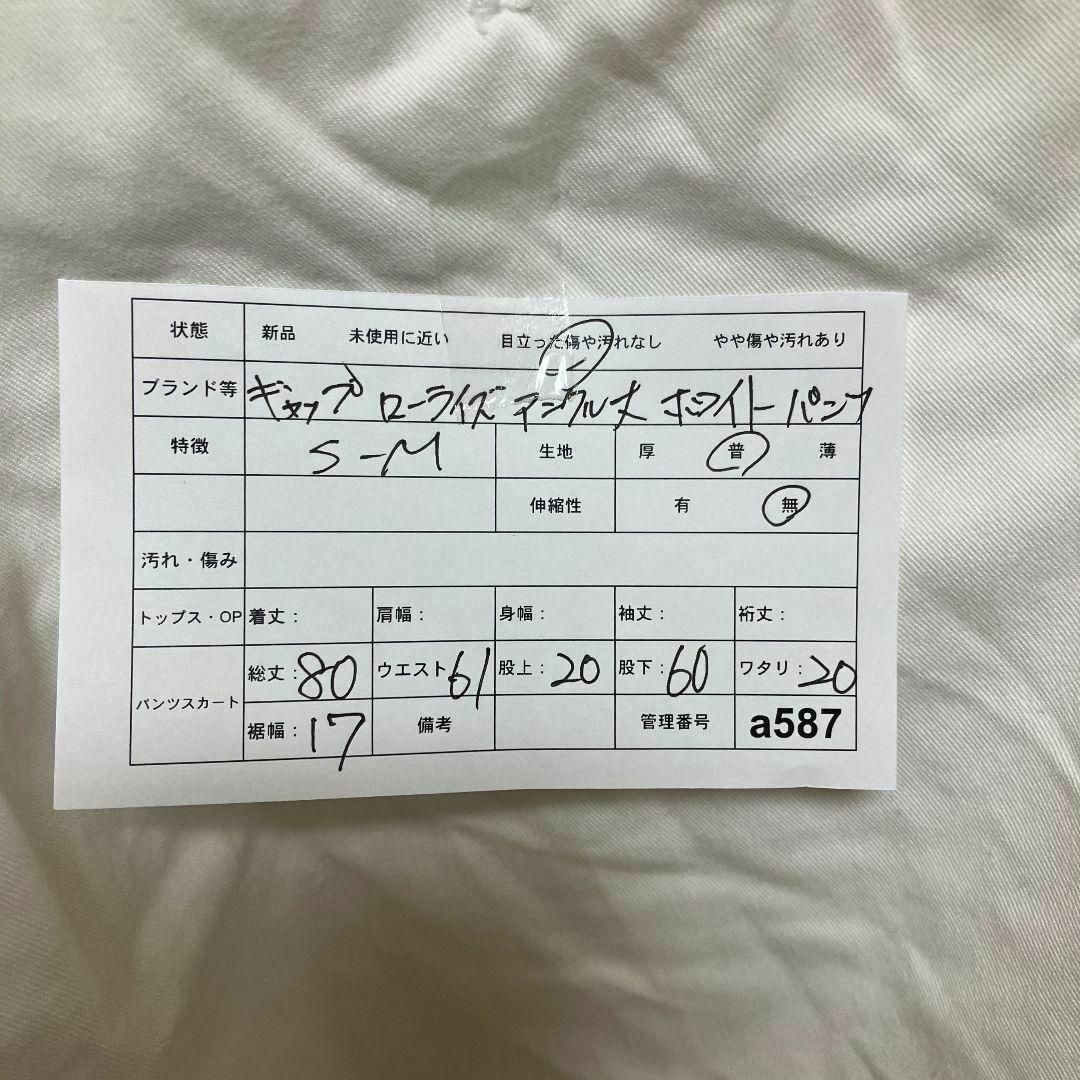 状態 新品 未使用に近い 目立った傷や汚れなし やや傷や汚れあり
ブランド等 ギャップ ローライズ アンクル丈 ホワイト パンツ
特徴 S-M 生地 厚 普 薄
伸縮性 有 無
汚れ・傷み
トップス・OP 着丈： 肩幅： 身幅： 袖丈： 裄丈：
パンツスカート 総丈：80 ウエスト61 股上：20 股下：60 ワタリ：20
裾幅：17 備考 管理番号 a587